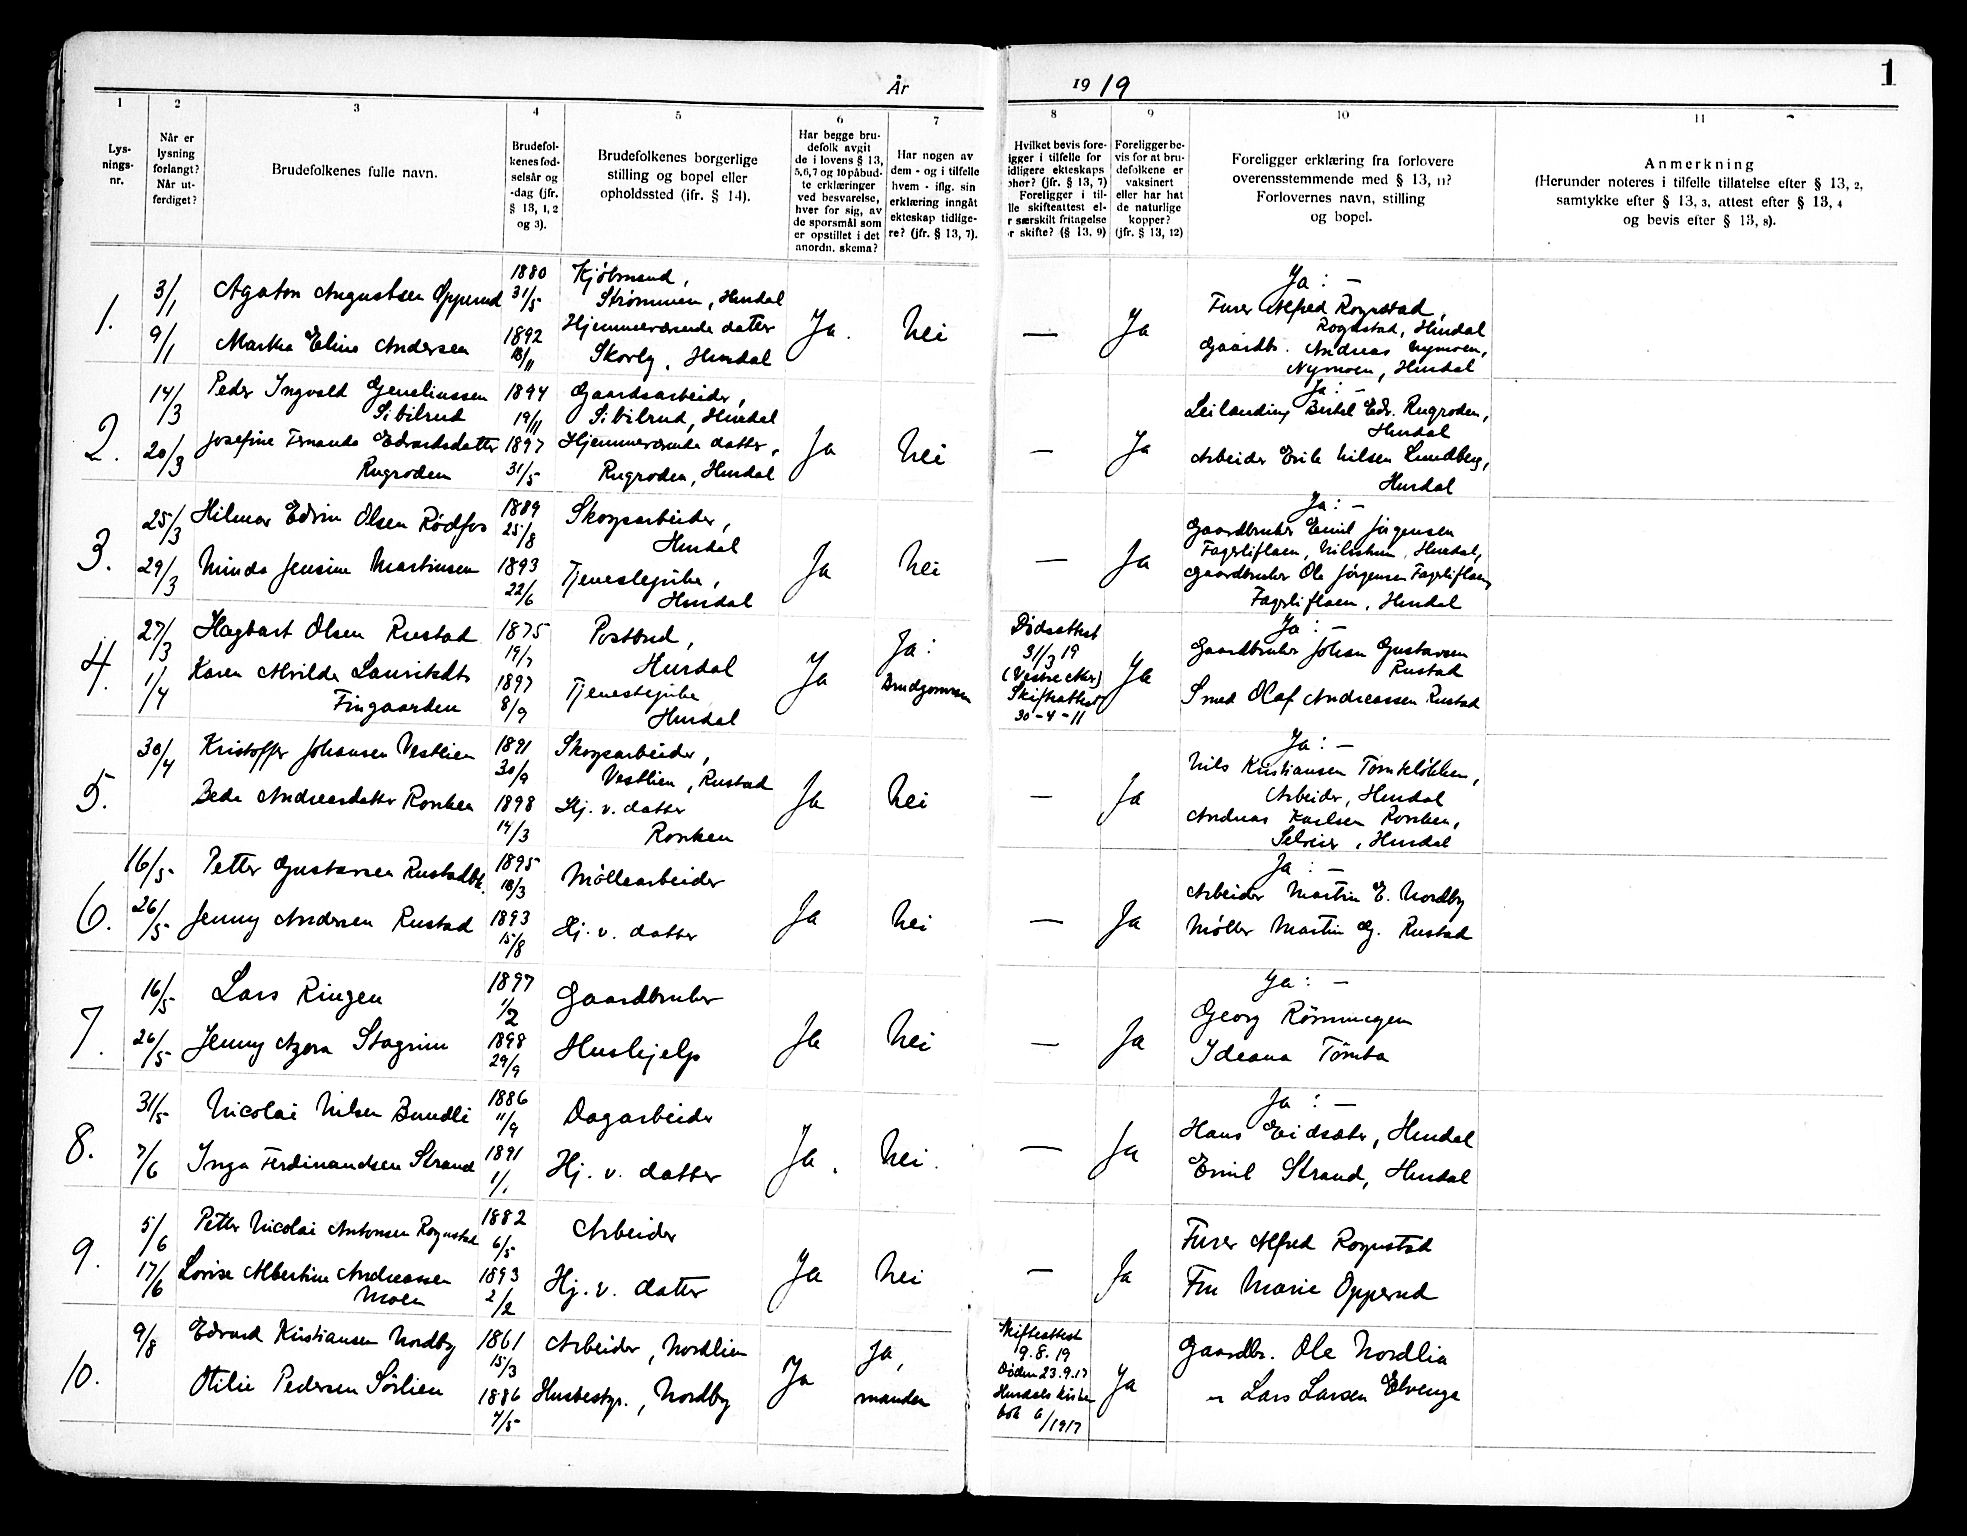 År
1919
1
1
2
3
4
5
6
7
8
9
10
11
Lys-
nings-
nr.
Når er
lysning
forlangt?
Når ut-
ferdiget?
Brudefolkenes fulle navn.
Brudefol-
kenes fød-
selsår og
-dag (jfr.
§ 13, 1, 2
og 3).
Brudefolkenes borgerlige
stilling og bopel eller
opholdssted (ifr. § 14).
Har begge bru-
defolk avgit
de i lovens § 13,
5,6,7 og 10 påbud-
te erklæringer
ved besvarelse,
hver for sig, av
de spørsmål som
er opstillet i det
anordn. skema?
Har nogen av
dem - og i tilfelle
hvem - iflg. sin
erklæring inngåt
ekteskap tidlige-
re? (jfr. § 13, 7).
Hvilket bevis fore-
igger i tilfelle for
idligere ekteskaps
phør? (jfr. § 13, 7)
Foreligger i til-
lle skifteattest el-
r særskilt fritagelse
r skifte? (§ 13. 9)
Foreligger be-
vis for at bru-
defolkene er
vaksinert
eller har hat
de naturlige
kopper?
(jfr. § 13, 12)
Foreligger erklæring fra forlovere
overensstemmende med § 13, 11?
Forlovernes navn, stilling
og bopel.
Anmerkning
(Herunder noteres i tilfelle tillatelse efter § 13, 2,
samtykke efter § 13, 3, attest efter § 13, 4
og bevis efter § 13, 8).
1.
3/1
Agaton Augustsen Opperud
1880
31/5
Kjøbmand,
Strømmen, Hurdal
9/1
Martha Eline Andersen
1892
18/11
Hjemmeværende datter
Skovly, Hurdal
Ja.
Nei
—
Ja
Ja: —
Furer Alfred Rognstad,
Rognstad, Hurdal
Gaardbr. Andreas Nymoen,
Nymoen, Hurdal
2.
14/3
Peder Ingvald Geneliussen
Sibilrud
1894
19/11
Gaardsarbeider,
Sibilrud, Hurdal
20/3
Josefine Fernanda Edvardsdatter
Rugroden
1897
31/5
Hjemmeværende datter,
Rugroden, Hurdal
Ja
Nei
—
Ja
Ja: —
Leilænding Bertel Edv. Rugroden,
Hurdal
Arbeider Erik Nilsen Lundberg,
Hurdal
3.
25/3
Hilmar Edvin Olsen Rødfos
1889
25/8
Skogsarbeider,
Hurdal
29/3
Minda Jensine Martinsen
1893
22/6
Tjenestepike,
Hurdal
Ja
Nei
—
Ja
Ja: —
Gaardbruker Emil Jørgensen
Fagerliflaen, Hurdal,
Gaardbruker Ole Jørgensen Fagerliflaen
Fagerliflaen, Hurdal
4.
27/3
Hagbart Olsen Rustad
1875
19/7
Postbud,
Hurdal
1/4
Karen Alvilde Lauritzdtr
Fingaarden
1897
8/9
Tjenestepike
Hurdal
Ja
Ja:
Brudgommen
Dødsattest
31/3 19
(Vestre Aker)
Skifteattest
30-4-11
Ja
Ja: —
Gaardbruker Johan Gustavsen
Rustad
Smed Olaf Andreassen Rustad
5.
30/4
Kristoffer Johansen Vestlien
1891
30/9
Skogsarbeider,
Vestlien, Rustad
Beda Andreasdatter Ronken
1898
14/3
Hj. v. datter
Ronken
Ja
Nei
—
Ja
Ja: —
Nils Kristiansen Tømtløkken,
Arbeider, Hurdal
Andreas Karlsen Ronken,
Selveier, Hurdal
6.
16/5
Petter Gustavsen Rustadbk.
1895
18/3
Møllearbeider
26/5
Jenny Andersen Rustad
1893
15/8
Hj. v. datter
Ja
Nei
—
Ja
Ja: —
Arbeider Martin E. Nordby
Møller Martin G. Rustad
7.
16/5
Lars Ringen
1897
1/2
Gaardbruker
26/5
Jenny Agora Stagrim
1898
29/9
Hushjelp
Ja
Nei
—
Ja
Ja: —
Georg Rønningen
Ideana Tømta
8.
31/5
Nicolai Nilsen Bundli
1886
11/9
Dagarbeider
7/6
Inga Ferdinandsen Strand
1891
1/1
Hj. v. datter
Ja.
Nei.
—
Ja
Ja: —
Hans Eidsæter, Hurdal
Emil Strand, Hurdal
9.
5/6
Petter Nicolai Antonsen Rognstad
1882
6/5
Arbeider
17/6
Lovise Albertine Andreassen
Moen
1893
2/2
Hj. v. datter
Ja
Nei
—
Ja
Furer Alfred Rognstad
Fru Marie Opperud
10.
9/8
Edvard Kristiansen Nordby
1861
15/3
Arbeider, Nordlien
Otilie Pedersen Sørlien
1886
7/5
Husbestyr., Nordby
Ja
Ja,
manden
Skifteattest
9.8.19
Døden 23.9.17
Hurdals kirke
bok 6/1917
Ja
Gaardbr. Ole Nordlia
" Lars Larsen Elvenga